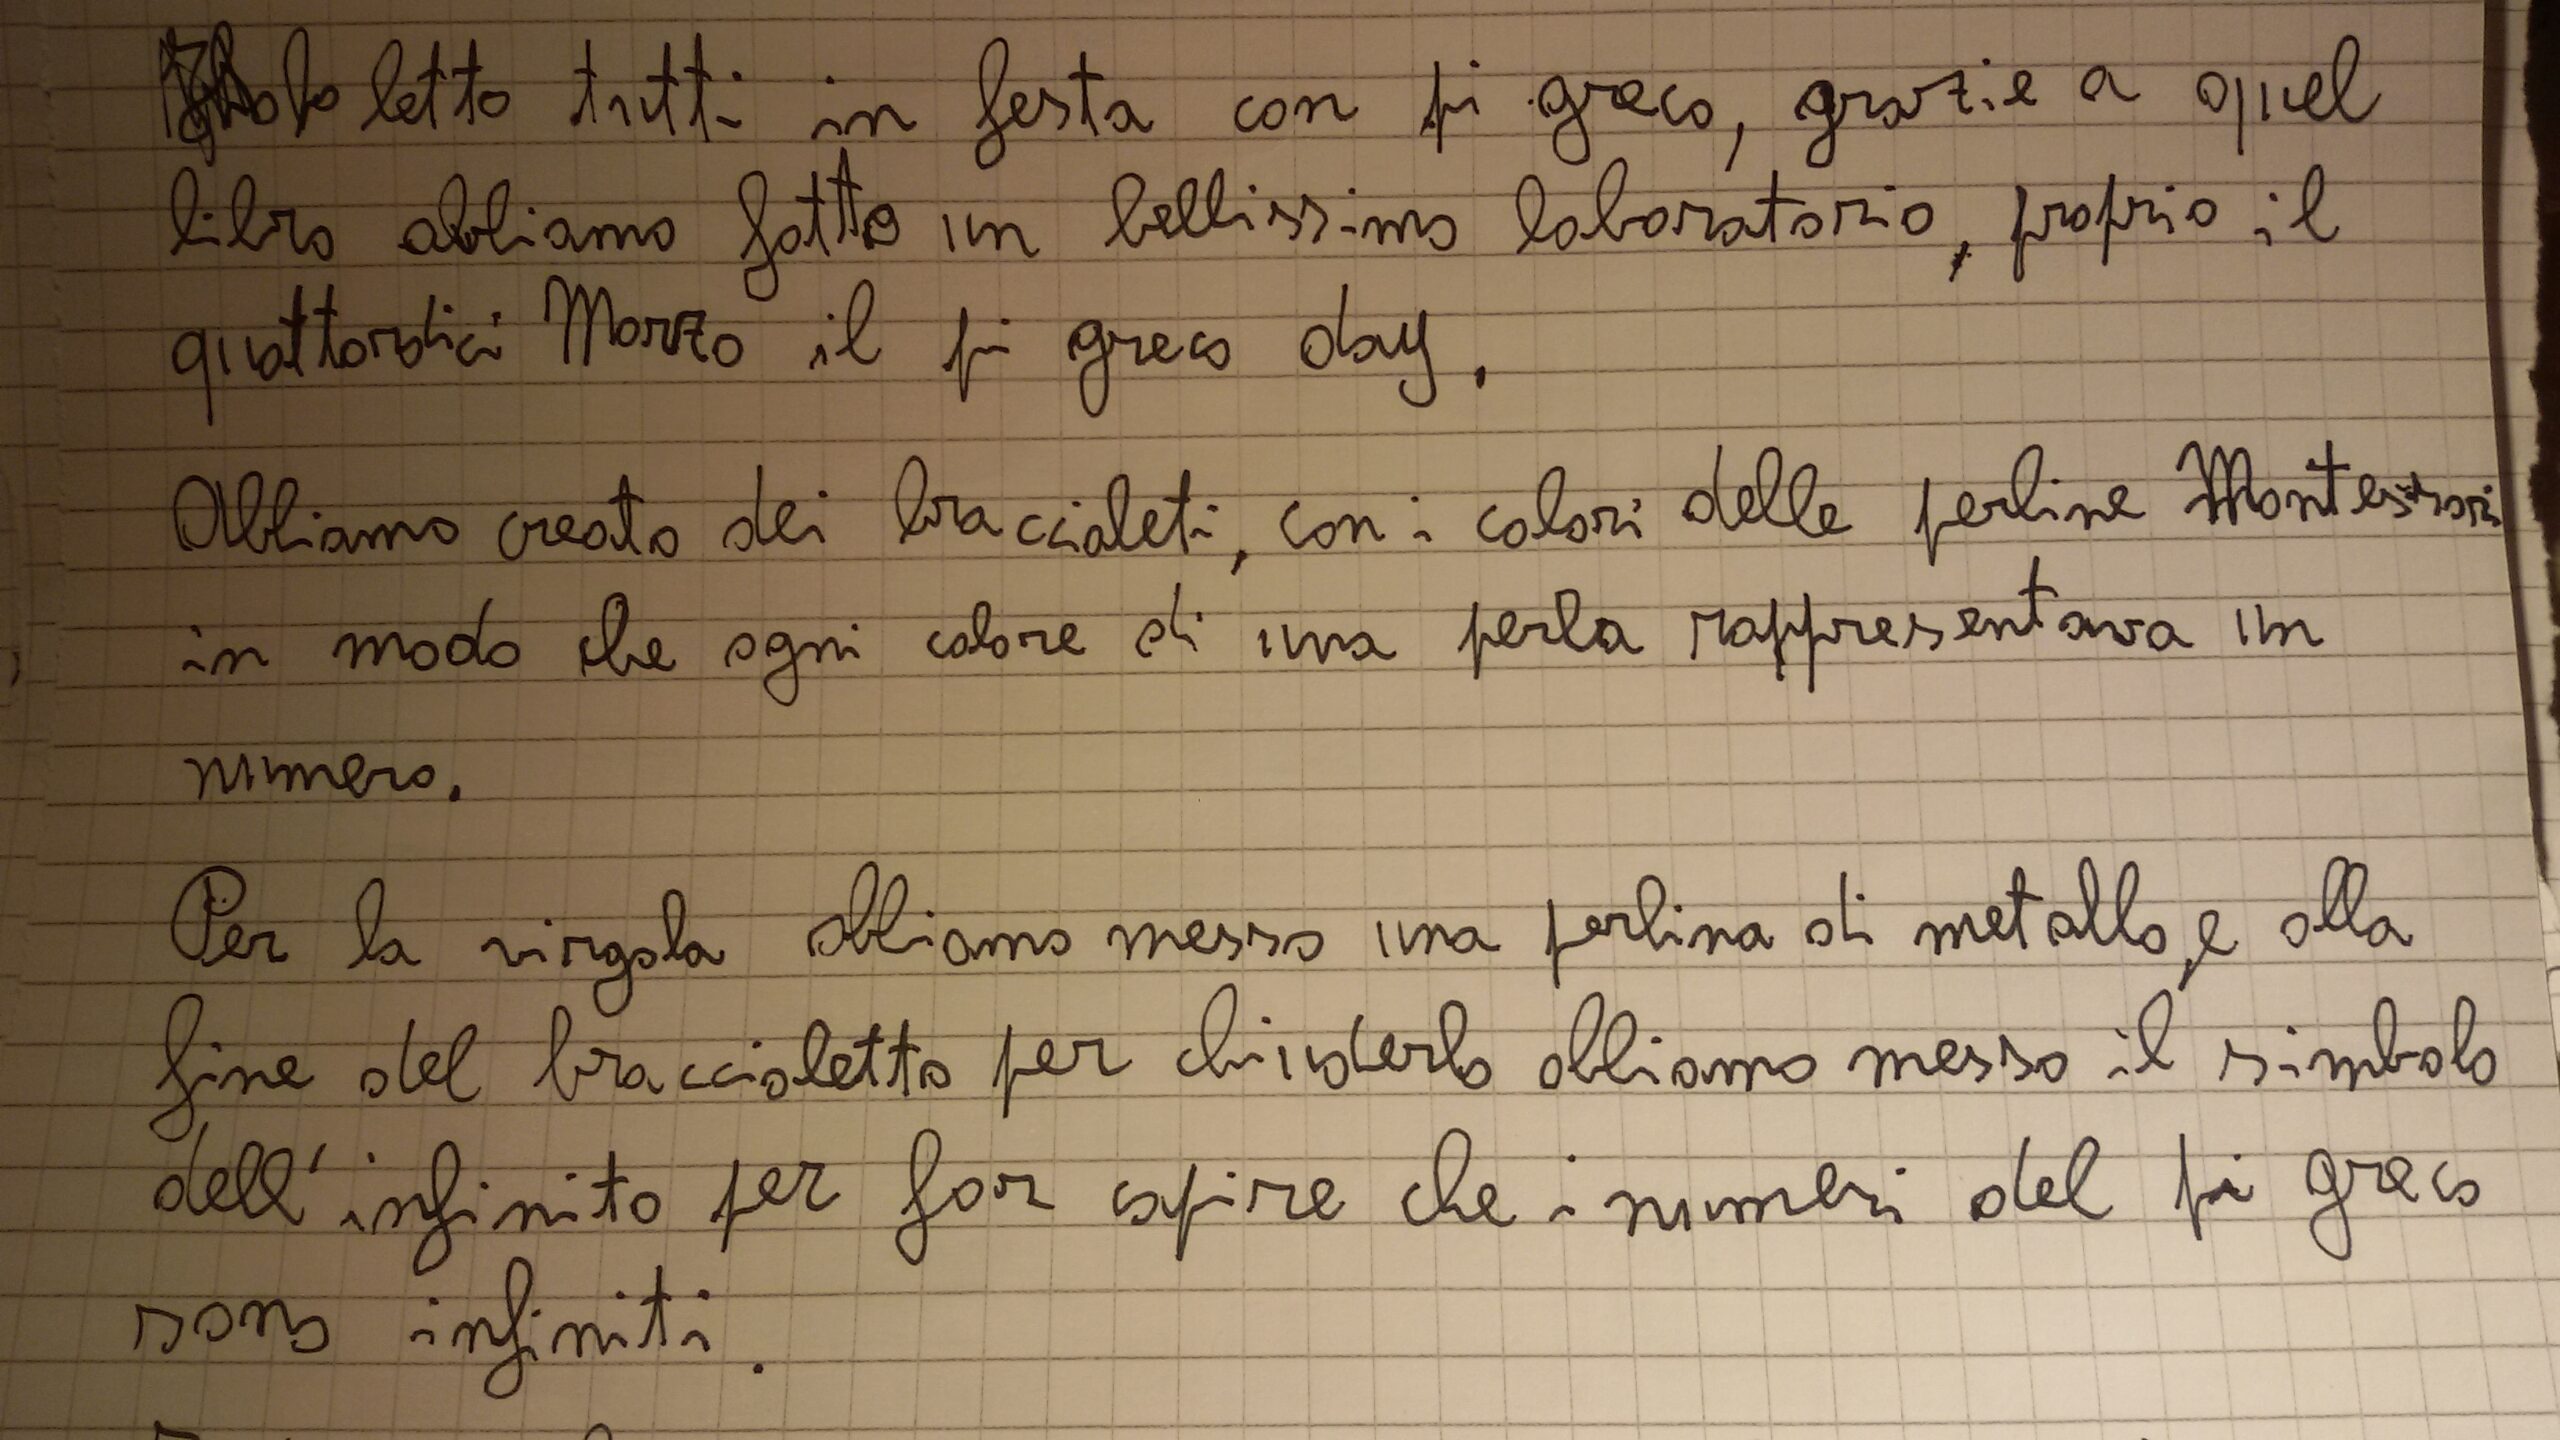 letto tutti in festa con pi greco, grazie a quel
libro abbiamo fatto un bellissimo laboratorio, proprio il
quattordici Marzo il pi greco day.
Abbiamo creato dei braccialeti, con i colori delle perline Montessori
in modo che ogni colore di una perla rappresentava un
numero.
Per la virgola abbiamo messo una perlina di metallo, e alla
fine del braccialetto per chiuderlo abbiamo messo il simbolo
dell'infinito per far capire che i numeri del pi greco
sono infiniti.